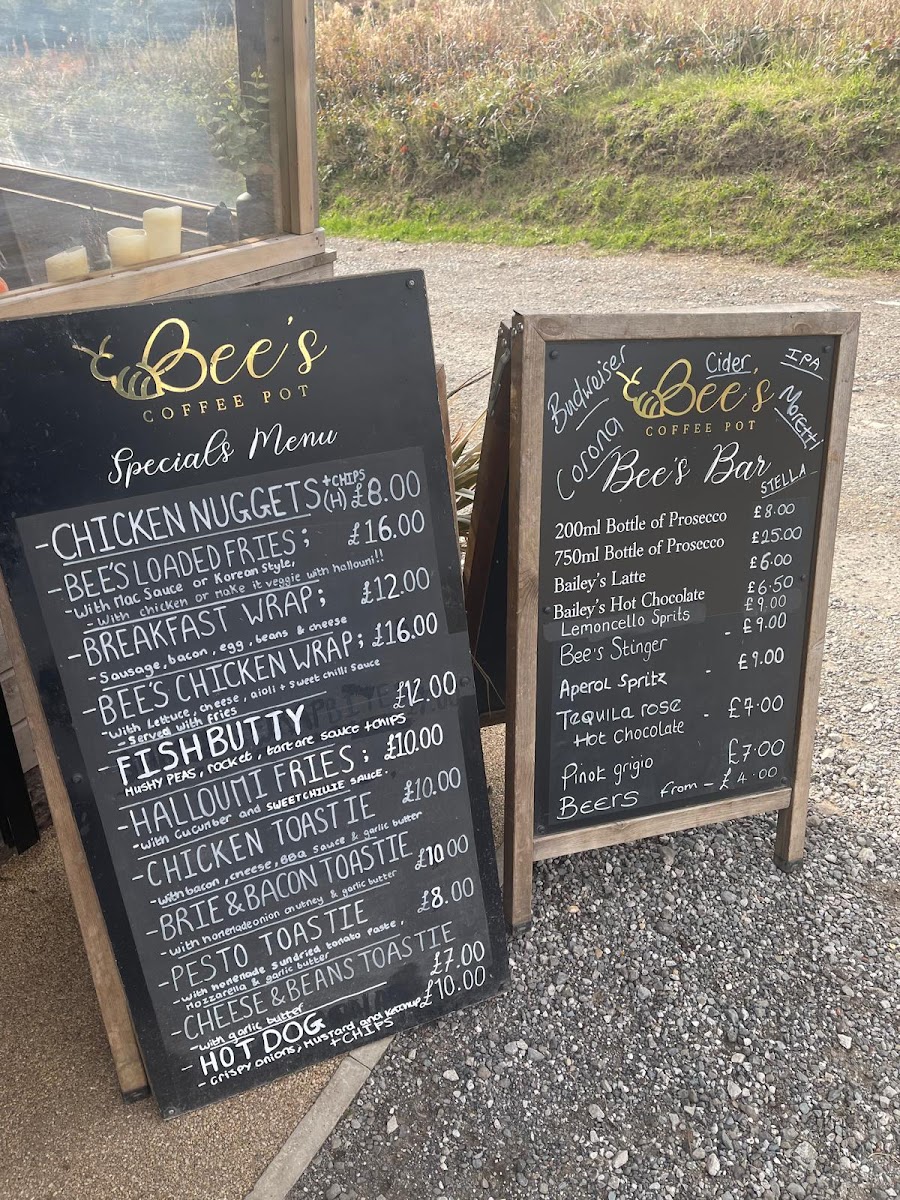 Bee's
COFFEE POT
Specials Menu
-CHICKEN NUGGETS +CHIPS (H) £8.00
-BEE'S LOADED FRIES; £16.00
-With Mac Sauce or Korean Style,
- With chicken or make it veggie with hallouni!!
-BREAKFAST WRAP; £12.00
- Sausage, bacon, egg, beans & cheese
-BEE'S CHICKEN WRAP; £16.00
-With Lettuce, cheese, aioli + sweet chilli sauce
- Served with fries
-FISH BUTTY £12.00
MUSHY PEAS, rocket, tartare sauce +CHIPS
-HALLOUMI FRIES; £10.00
-With Cucumber and SWEETCHILLIE SAUCE.
-CHICKEN TOASTIE £10.00
-With bacon, cheese, BBQ sauce & garlic butter
-BRIE & BACON TOASTIE £10.00
-With homemade onion chutney & garlic butter
-PESTO TOASTIE £8.00
-With homemade sundried tomato paste,
Mozzarella & garlic butter
-CHEESE & BEANS TOASTIE £7.00
-With garlic butter
-HOT DOG £10.00
- Crispy onions, Mustard and Ketchup
+CHIPS
Budweiser
Cider
IPA
Bee's
COFFEE POT
Moretti
Corona
Bee's Bar
STELLA
200ml Bottle of Prosecco £8.00
750ml Bottle of Prosecco £25.00
Bailey's Latte £6.00
Bailey's Hot Chocolate £6.50
Lemoncello Sprits £9.00
Bee's Stinger - £9.00
Aperol Spritz - £9.00
Tequila rose - £7.00
Hot Chocolate
Pinot grigio £7.00
Beers from - £4.00